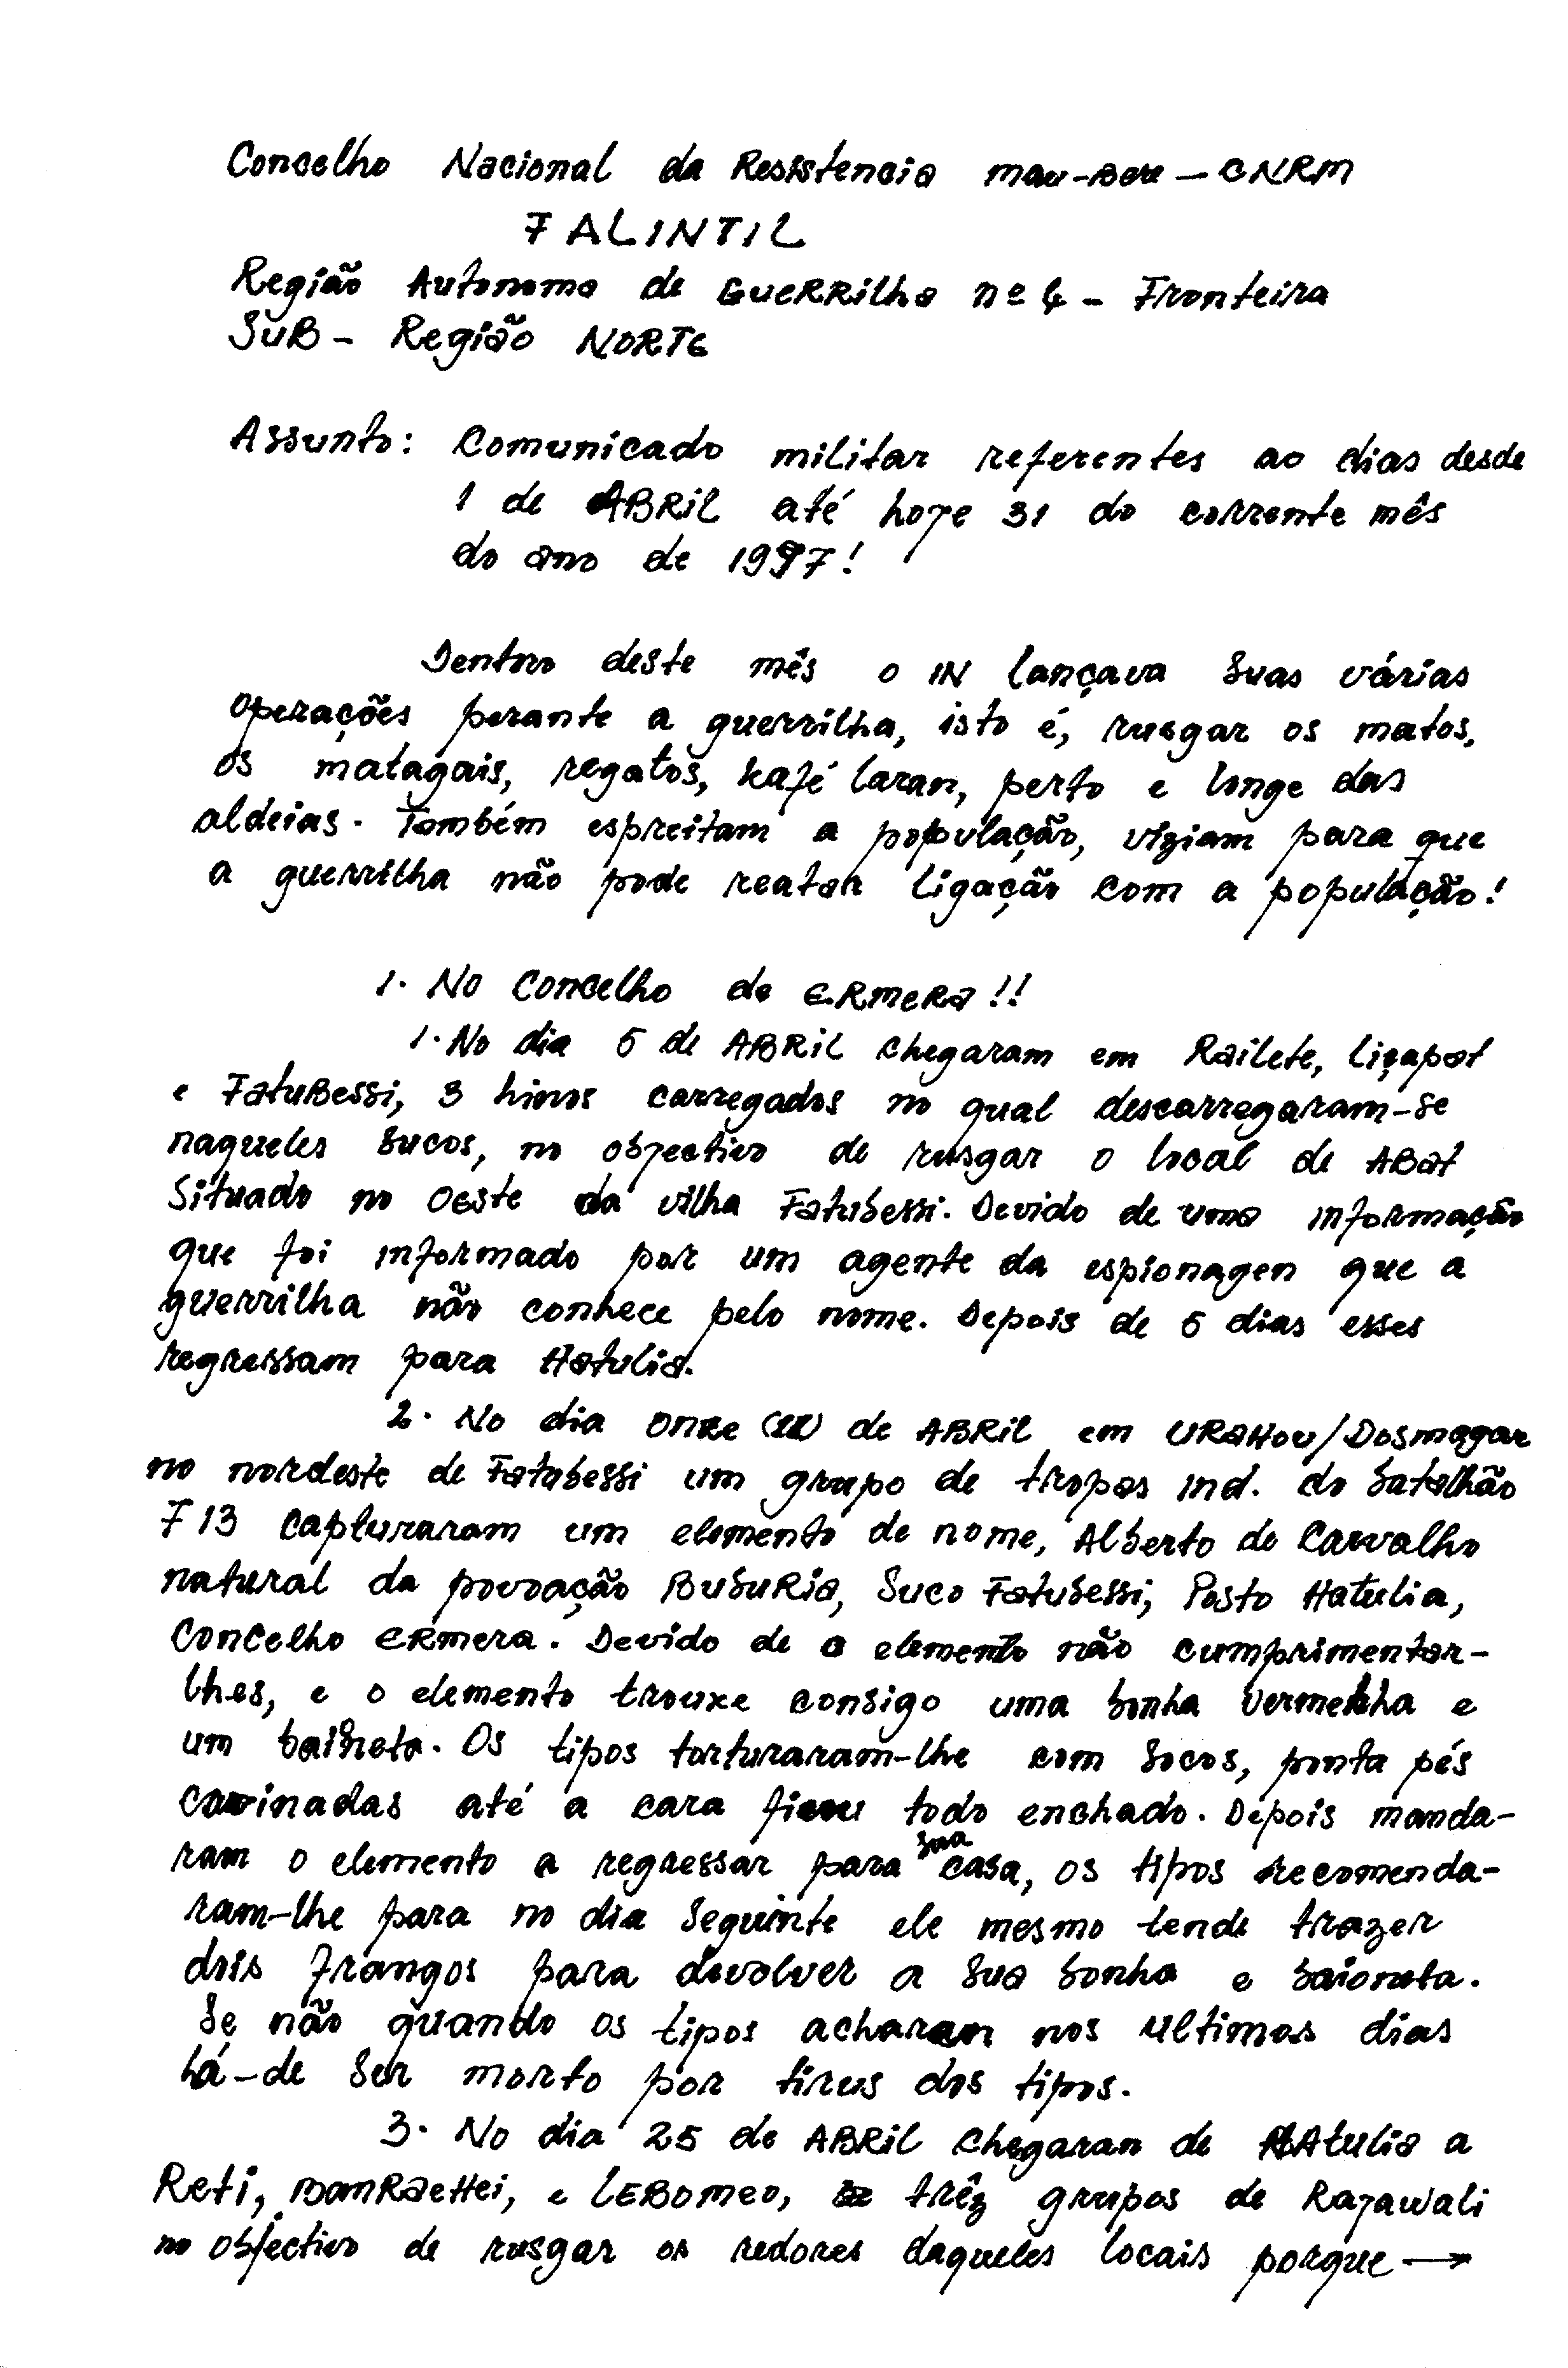 Concelho Nacional da Resistencia Mau-Bere - CNRM
FALINTIL
Região Autonoma de GueRRilha nº 4 - Fronteira
SUB - Região NORTE
Assunto: Comunicado militar referentes ao dias desde
1 de ABRIL até hoje 31 do corrente mês
do ano de 1997!
Dentro deste mês o IN lançava suas várias
operações perante a guerrilha, isto é, rusgar os matos,
os matagais, regatos, kafé laran, perto e longe das
aldeias. Também espreitam a população, vigiam para que
a guerrilha não pode reatar ligação com a população!
1. No Concelho de ERMERA!!
1. No dia 5 de ABRIL chegaram em Railete, liçapat
e FatuBessi, 3 hinos carregados no qual descarregaram-se
naqueles sucos, no objectivo de rusgar o local de ABat
situado no oeste da vilha Fatubessi. Devido de uma informação
que foi informado por um agente da espionagen que a
guerrilha não conhece pelo nome. Depois de 5 dias esses
regressam para Hatulia.
2. No dia onze (11) de ABRIL em URAHou/Dosmagar
no nordeste de Fatubessi um grupo de tropas ind. do batalhão
F13 capturaram um elemento de nome, Alberto de Carvalho
natural da povoação BubuRia, Suco Fatubessi, Posto Hatulia,
Concelho ERmera. Devido de o elemento não cumprimentar-
lhes, e o elemento trouxe consigo uma bonha vermelha e
um baineta. Os tipos torturaram-lhe com socos, ponta pés
cavinadas até a cara ficou todo enchado. Depois manda-
ram o elemento a regressar para sua casa, os tipos recomenda-
ram-lhe para no dia seguinte ele mesmo tende trazer
dois frangos para devolver a sua bonha e baioneta.
Se não quando os tipos acharan nos ultimos dias
há-de ser morto por tirus dos tipos.
3. No dia 25 de ABRIL chegaran de HAtulia a
Reti, BanRaeHei, e LEBOmeo, três grupos de Rajawali
no objectivo de rusgar os redores daqueles locais porque →